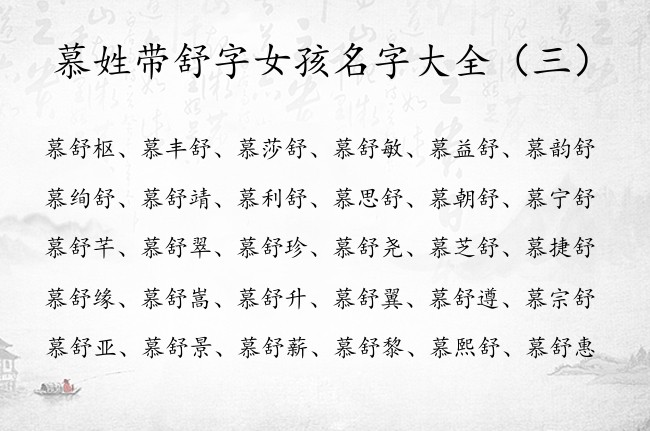 慕姓带舒字女孩名字大全（三）
慕舒枢、慕丰舒、慕莎舒、慕舒敏、慕益舒、慕韵舒
慕绚舒、慕舒靖、慕利舒、慕思舒、慕朝舒、慕宁舒
慕舒芊、慕舒翠、慕舒珍、慕舒尧、慕芝舒、慕捷舒
慕舒缘、慕舒嵩、慕舒升、慕舒翼、慕舒遵、慕宗舒
慕舒亚、慕舒景、慕舒薪、慕舒黎、慕熙舒、慕舒惠